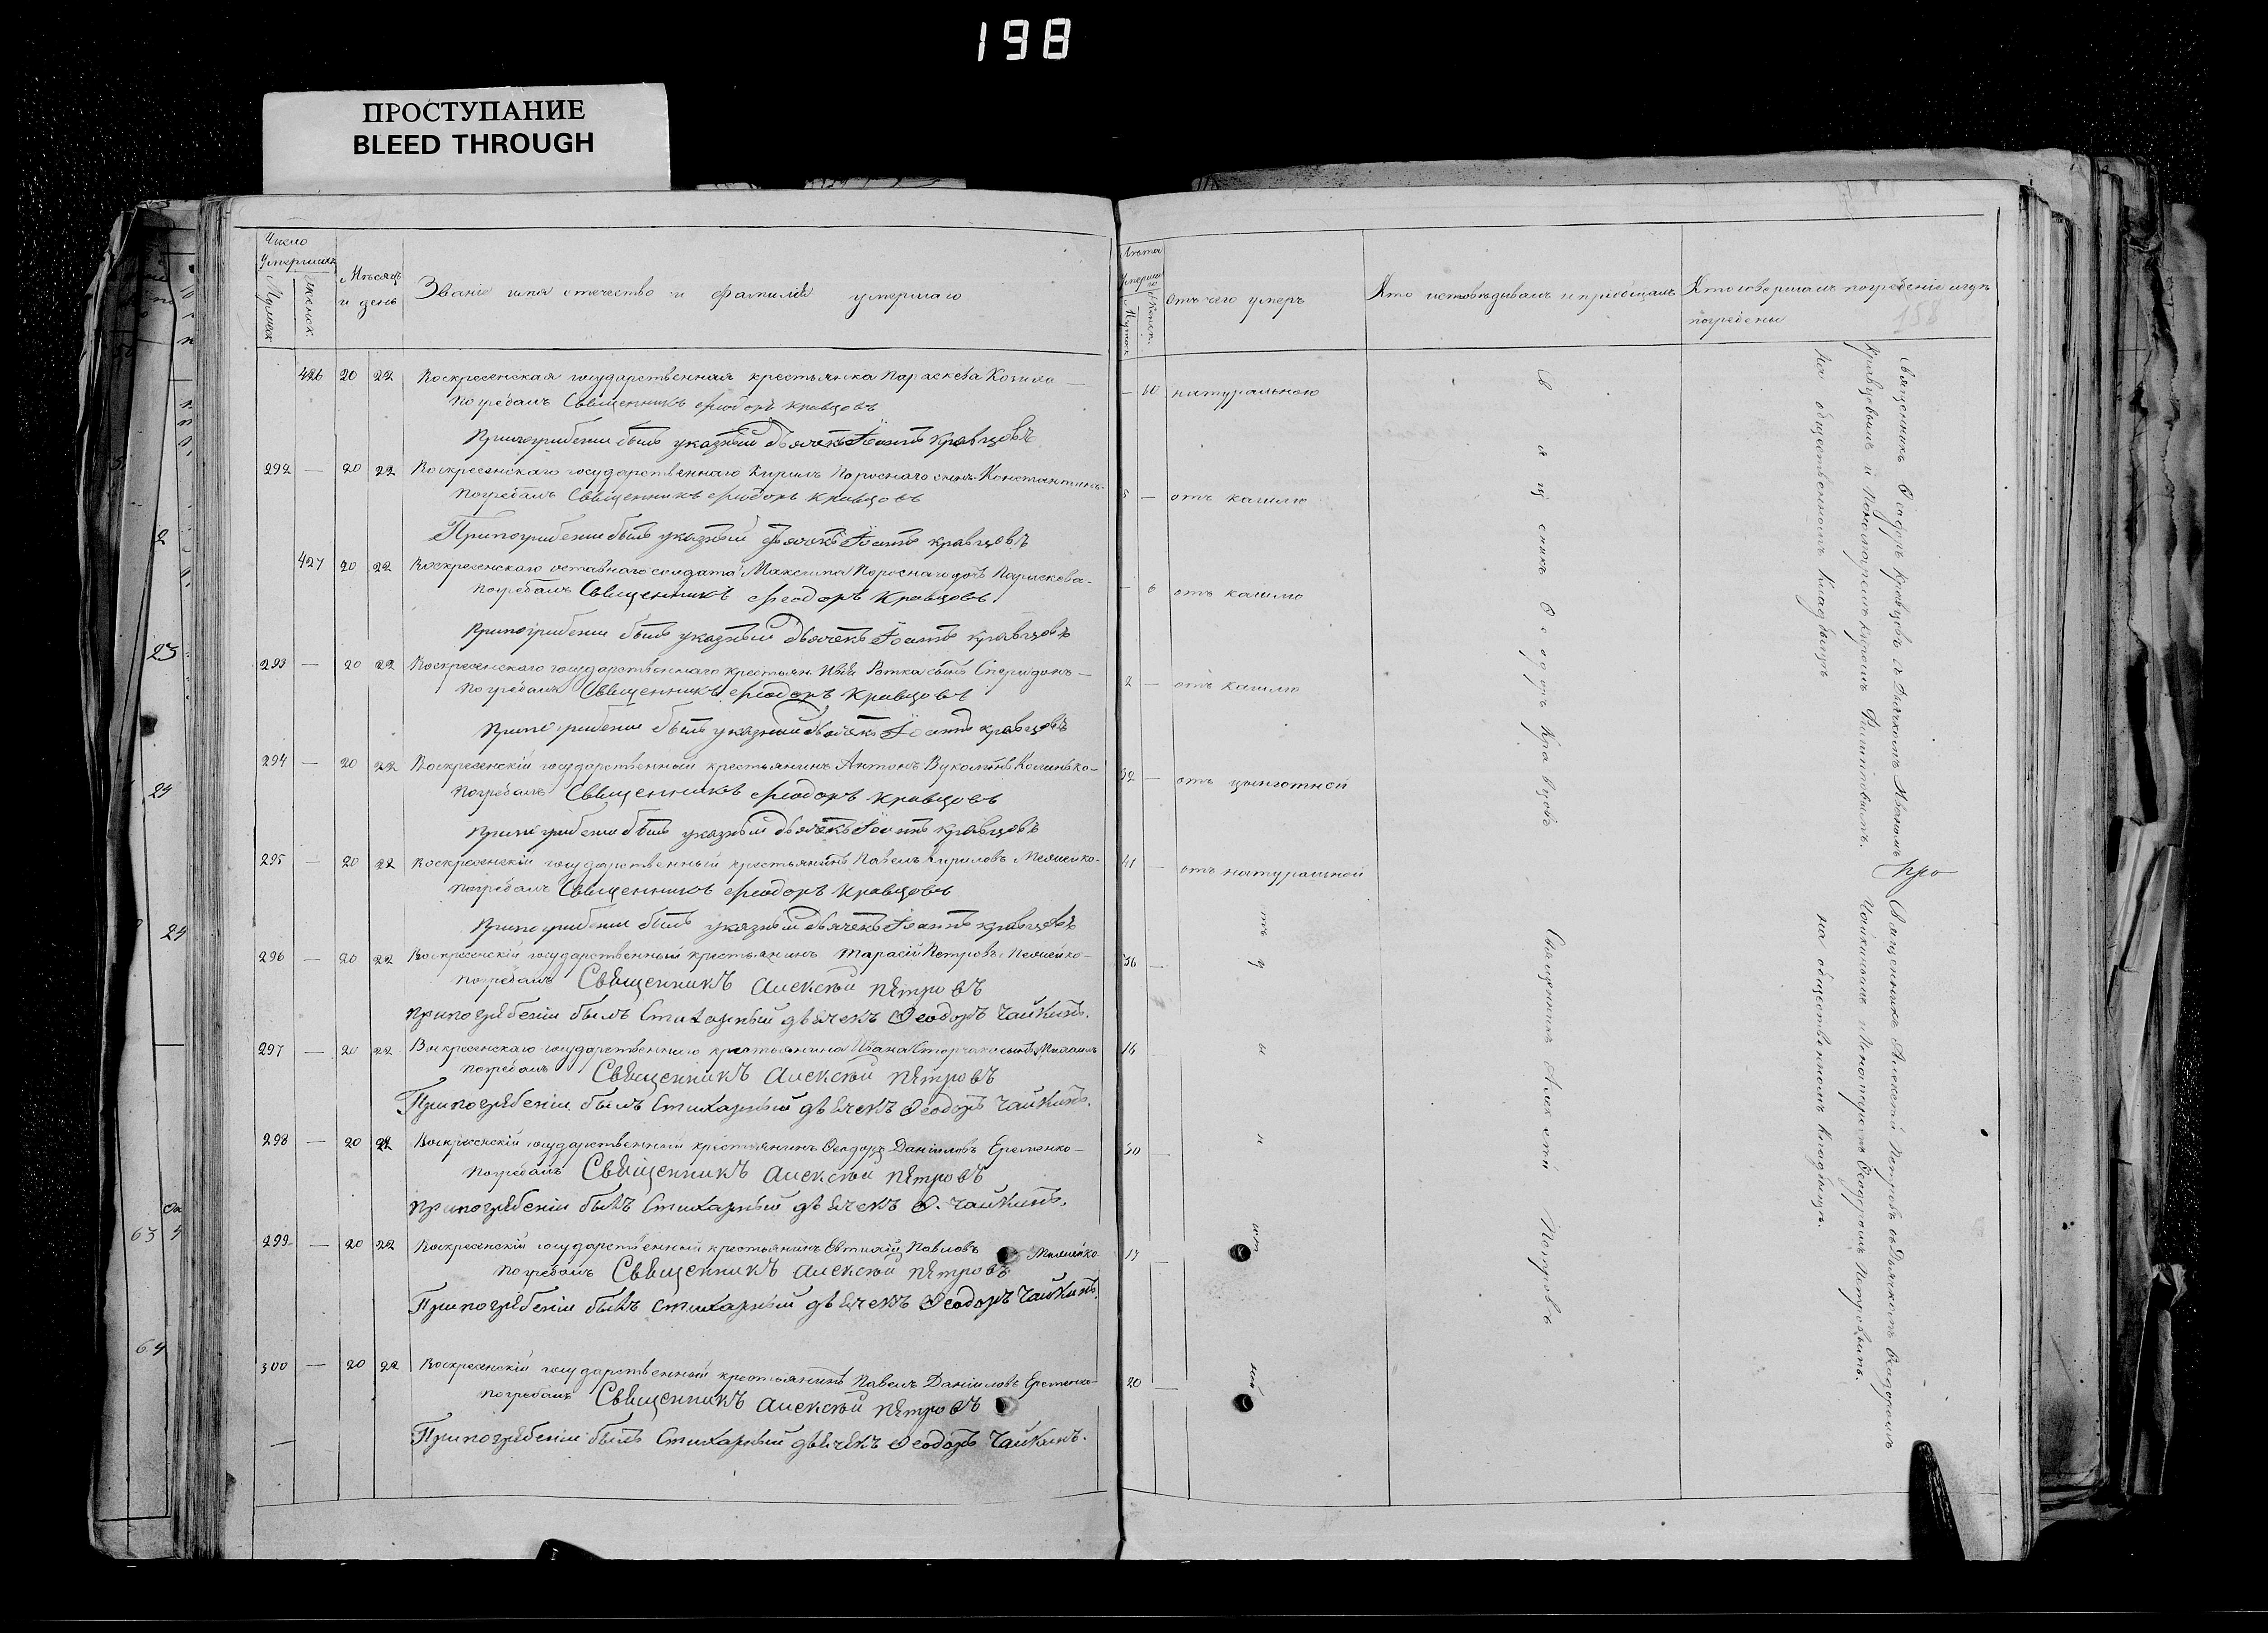 198
ПРОСТУПАНИЕ
BLEED THROUGH
Число
Умершихъ
Мужеск.
женск.
Мѣсяцъ
и день
Званіе имя отечество и фамилія умершаго
426 20 22 Воскресенская государственная крестьянка Параскева
Погребалъ Священникъ Феодоръ Кравцовъ
При погрибении былъ указный дьячекъ Іоаннъ Кравцовъ
292 — 20 22 Воскресенскаго государственнаго Кирилъ Пороснаго сынъ Константинъ
Погребалъ Священникъ Феодоръ Кравцовъ
При погрибении былъ указный дьячекъ Іоаннъ Кравцовъ
427 20 22 Воскресенскаго оставнаго солдата Максима Пороснаго дочь Параскева
Погребалъ Священникъ Феодоръ Кравцовъ
При погрибении былъ указный дьячекъ Іоаннъ Кравцовъ
293 — 20 22 Воскресенскаго государственнаго крестьян. сынъ Спиридонъ
Погребалъ Священникъ Феодоръ Кравцовъ
При погрибении былъ указный дьячекъ Іоаннъ Кравцовъ
294 — 20 22 Воскресенскій государственный крестьянинъ Антонъ
Погребалъ Священникъ Феодоръ Кравцовъ
При погрибении былъ указный дьячекъ Іоаннъ Кравцовъ
295 — 20 22 Воскресенскій государственный крестьянинъ Павелъ Кириловъ
Погребалъ Священникъ Феодоръ Кравцовъ
При погрибении былъ указный дьячекъ Іоаннъ Кравцовъ
296 — 20 22 Воскресенскій государственный крестьянинъ Тарасій Петровъ
Погребалъ Священникъ Алексѣй Петровъ
При погребеніи былъ Стихарный дьячекъ Ѳеодоръ Чайкинъ.
297 — 20 22 Воскресенскаго государственнаго крестьянина Ивана сынъ Михаилъ
Погребалъ Священникъ Алексѣй Петровъ
При погребеніи былъ Стихарный дьячекъ Ѳеодоръ Чайкинъ.
298 — 20 22 Воскресенскій государственный крестьянинъ Ѳеодоръ Даніиловъ Еременко
Погребалъ Священникъ Алексѣй Петровъ
При погребеніи былъ Стихарный дьячекъ Ѳ. Чайкинъ.
299 — 20 22 Воскресенскій государственный крестьянинъ Евтихій Павловъ
Погребалъ Священникъ Алексѣй Петровъ
При погребеніи былъ Стихарный дьячекъ Ѳеодоръ Чайкинъ.
300 — 20 22 Воскресенскій государственный крестьянинъ Павелъ Даніиловъ Еременко
Погребалъ Священникъ Алексѣй Петровъ
При погребеніи былъ Стихарный дьячекъ Ѳеодоръ Чайкинъ.
Лѣта
Умерша
Мужеск.
Женск.
Отъ чего умеръ
Кто исповѣдывалъ и пріобщалъ
Кто совершалъ погребеніе и гдѣ
погребены
158
— 60 натуральною
5 — отъ кашлю
— 6 отъ кашлю
2 — отъ кашлю
32 — отъ цынготной
41 — отъ натуральной
36 —
16 —
30 —
17 —
20 —
Священникъ Ѳеодоръ Кравцовъ
Священникъ Алексѣй Петровъ
Священникъ Ѳеодоръ Кравцовъ съ Дьячкомъ Иваномъ
Кравцовымъ и Пономаремъ Филиповымъ.
На общественномъ Кладбищѣ
Про
Священникъ Алексѣй Петровъ съ Дьячкомъ Ѳеодоромъ
Чайкинымъ и Пономаремъ Петровымъ.
на общественномъ Кладбищѣ.